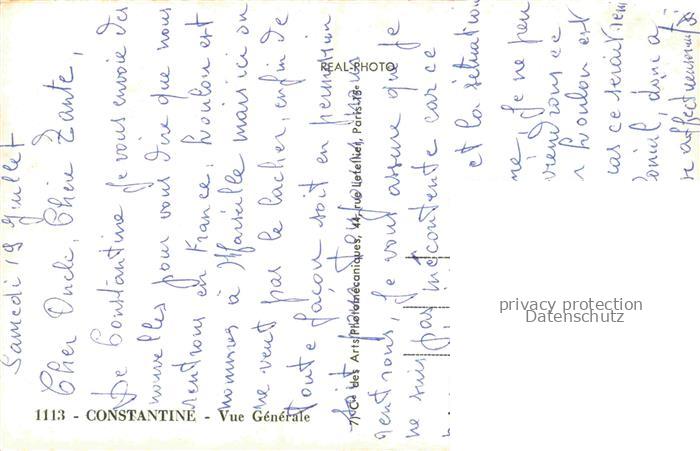 Samedi 19 Juillet
Cher Oncle, Chère Tante,
De Constantine je vous envoie des
nouvelles pour vous dire que nous
rentrons en France. Toulon est
nommés à Marseille mais ici on
ne veut pas le lacher, enfin de
toute façon soit en permission
soit pour toujours nous
rentrons, je vous assure que je
ne suis pas mécontente car ce
et la situation
ne. Je ne peu
viendrons ce
Toulon est
cas ce serait
donc a
affectueus
REAL-PHOTO
7, Cie des Arts Photomécaniques, 44, rue Letellier, Paris-15e
1113 - CONSTANTINE - Vue Générale
privacy protection
Datenschutz